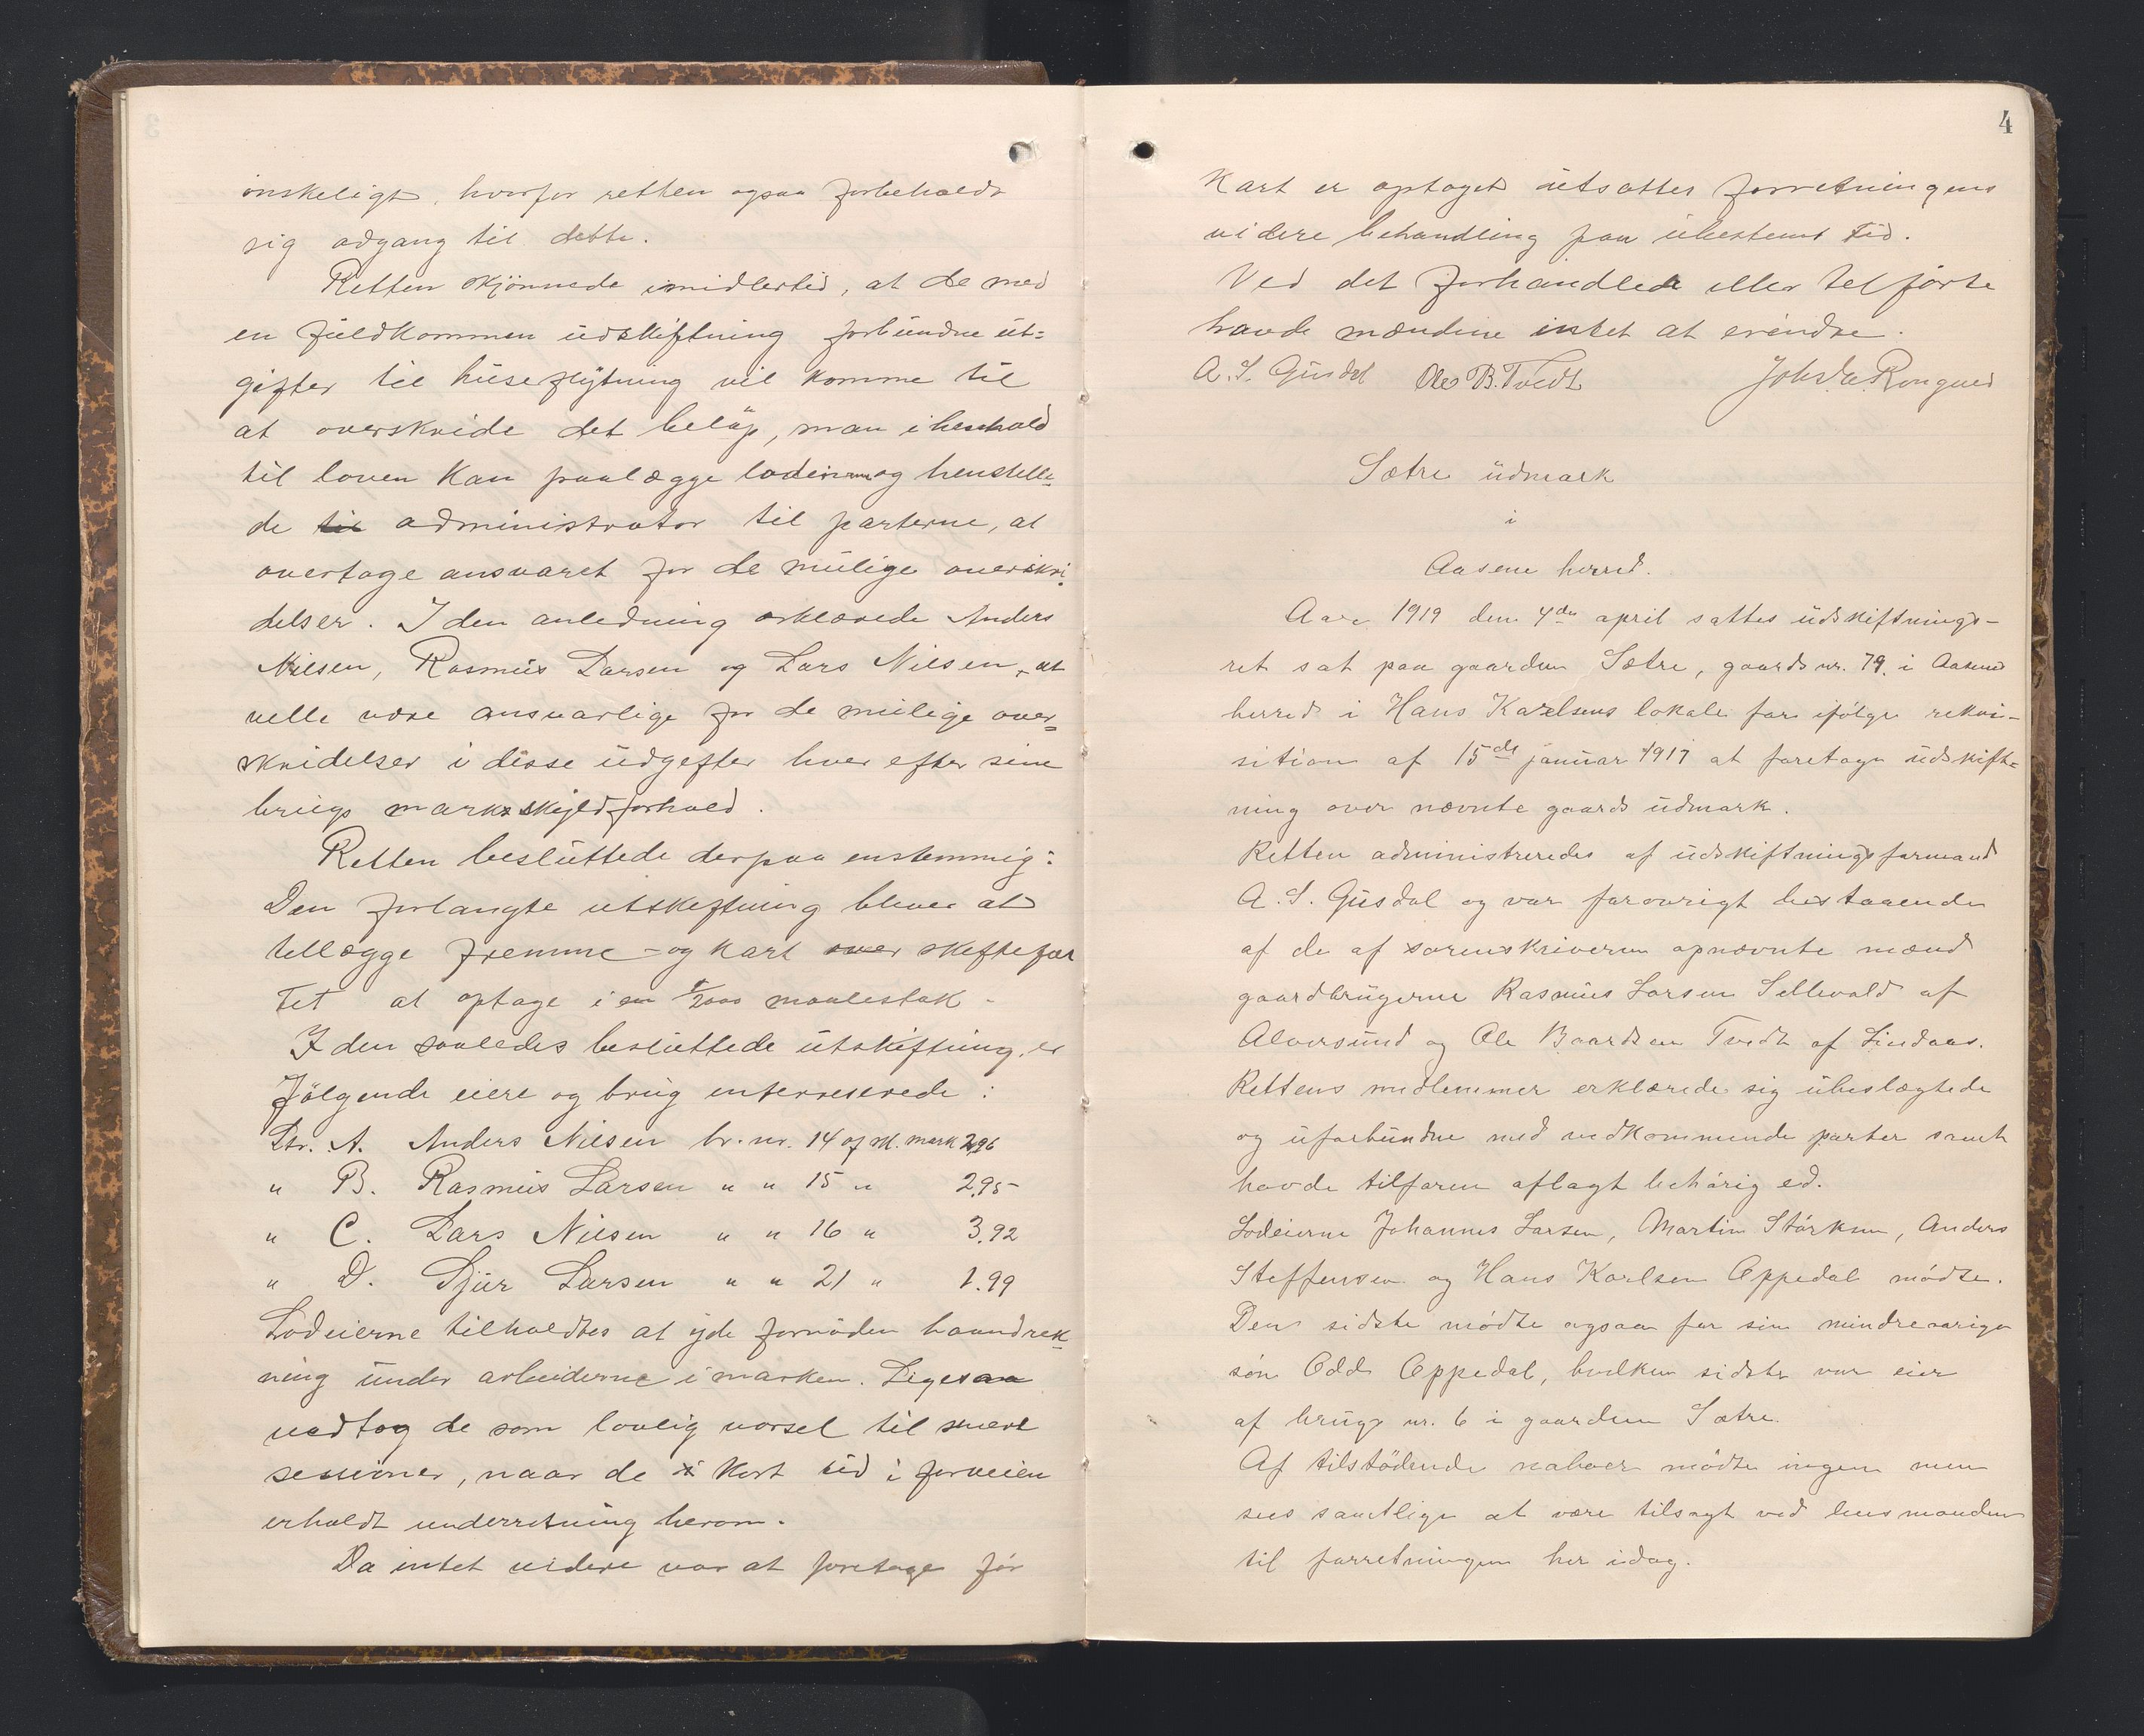 önskeligt, hvorfor retten ogsaa forbeholdt
sig adgang til dette.
Retten skjönnede imidlertid, at de med
en fuldkommen üdskiftning forbundne üt=
gifter til hüseflytning vil komme til
at overskride det belöp, man i henhold
til loven kan paalægge lodeierne og henstille=
de til administrator til parterne, at
overtage ansvaret for de mulige overskri=
delser. I den anledning erklærede Anders
Nilsen, Rasmüs Larsen og Lars Nilsen, at
ville være ansvarlige for de mulige over=
skridelser i disse üdgefter hver efter sine
brugs markskyldforhold.
Retten besluttede derpaa enstemmig:
Den forlangte utskiftning bliver at
tillægge fremme og kart over skiftefæl
tet at optage i en 1/2000 maalestok.
I den saaledes besluttede ütskiftning er
följgende eiere og brug interesserede:
Ltr. A. Anders Nilsen br. nr. 14 af sk. mark 2,96
" B. Rasmüs Larsen " " 15 " 2,95
" C. Lars Nilsen " " 16 " 3.92
" D. Sjur Larsen " " 21 " 1.99
Lodeierne tilholdtes at yde fornöden haandræk=
ning ünder arbeiderne i marken. Ligesaa
vedtog de som lovlig varsel til senere
sessioner, naar de i kort tid i forveien
erholdt underretning herom.
Da intet videre var at foretage för
4
Kart er optaget ütsattes forretningens
videre behandling paa übestemt tid.
Ved det forhandlede eller tilförte
havde mændene intet at erindre.
A. S. Güsdal Ole B. Tvedt Johs La. Rongved
Sætre üdmark
i
Aasene herred.
Aar 1919 den 4de april sattes üdskiftnings-
ret sat paa gaarden Sætre, gaards nr. 79. i Aasene
herred i Hans Karlsens lokale for ifölge rekvi-
sition af 15de januar 1917 at foretage üdskift=
ning over nævnte gaards üdmark.
Retten administreredes af üdskiftningsformand
A. S. Güsdal og var forövrigt bestaaende
af de af sorenskriveren opnævnte mænd
gaardbrügerne Rasmüs Larsen Sellevold af
Alversund og Ole Baardsen Tvedt af Lindaas.
Rettens medlemmer erklærede sig übeslægtede
og üforbündne med vedkommende parter samt
havde tilforn aflagt behörig ed.
Lodeierne Johannes Larsen, Martin Störksen, Anders
Steffensen og Hans Karlsen Oppedal mödte.
Den sidste mödte ogsaa for sin mindreaarige
sön Odd Oppedal, hvilken sidste var eier
af brugs nr. 6 i gaarden Sætre.
Af tilstödende naboer mödte ingen men
sees samtlige at være tilsagt ved lensmanden
til forretningen her idag.